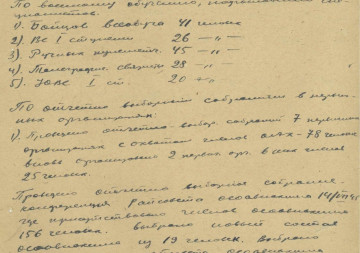 По военному обучению, подготовлено
1). Бойцов всевобуча 41 человек
2). ВС I ступени 26 —"—
3). Ручных пулеметч. 45 —"—
4). Телеграфист. связисты 28 —"—
5). ЮВС I ст. 20 —"—
По отчетно выборным собраниям в первич-
ных организациях:
1). Проведено отчетно-выбор. собраний 7 первичных
организациях с охватом членов ОАХ - 78 человек
вновь организовано 2 первич. орг. в них членов
25 человек.
Проведено отчетно выборное собрание.
конференция Райсовета осоавиахима 14/VII 41
где присутствовало членов осоавиахима
156 человек. выбрано новый состав
осоавиахима из 19 человек. Выбрано
осоавиахима